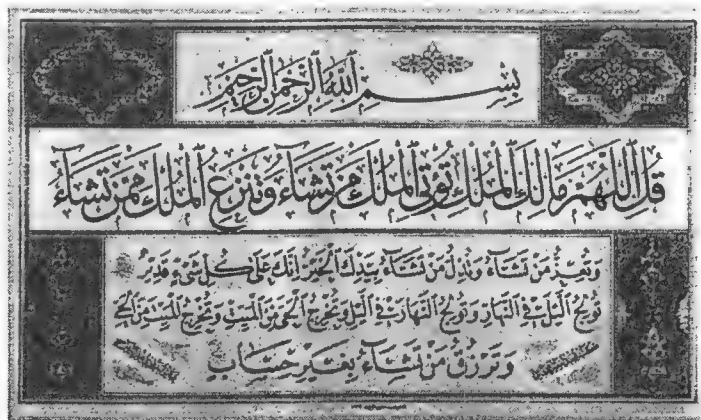 بِسْمِ اللَّهِ الرَّحْمَٰنِ الرَّحِيمِ
قُلِ اللَّهُمَّ مَالِكَ الْمُلْكِ تُؤْتِي الْمُلْكَ مَن تَشَاءُ وَتَنزِعُ الْمُلْكَ مِمَّن تَشَاءُ
وَتُعِزُّ مَنْ تَشَاءُ وَتُذِلُّ مَنْ تَشَاءُ بِيَدِكَ الْخَيْرُ إِنَّكَ عَلَىٰ كُلِّ شَيْءٍ قَدِيرٌ
تُولِجُ اللَّيْلَ فِي النَّهَارِ وَتُولِجُ النَّهَارَ فِي اللَّيْلِ وَتُخْرِجُ الْحَيَّ مِنَ الْمَيِّتِ وَتُخْرِجُ الْمَيِّتَ مِنَ الْحَيِّ
وَتَرْزُقُ مَنْ تَشَاءُ بِغَيْرِ حِسَابٍ